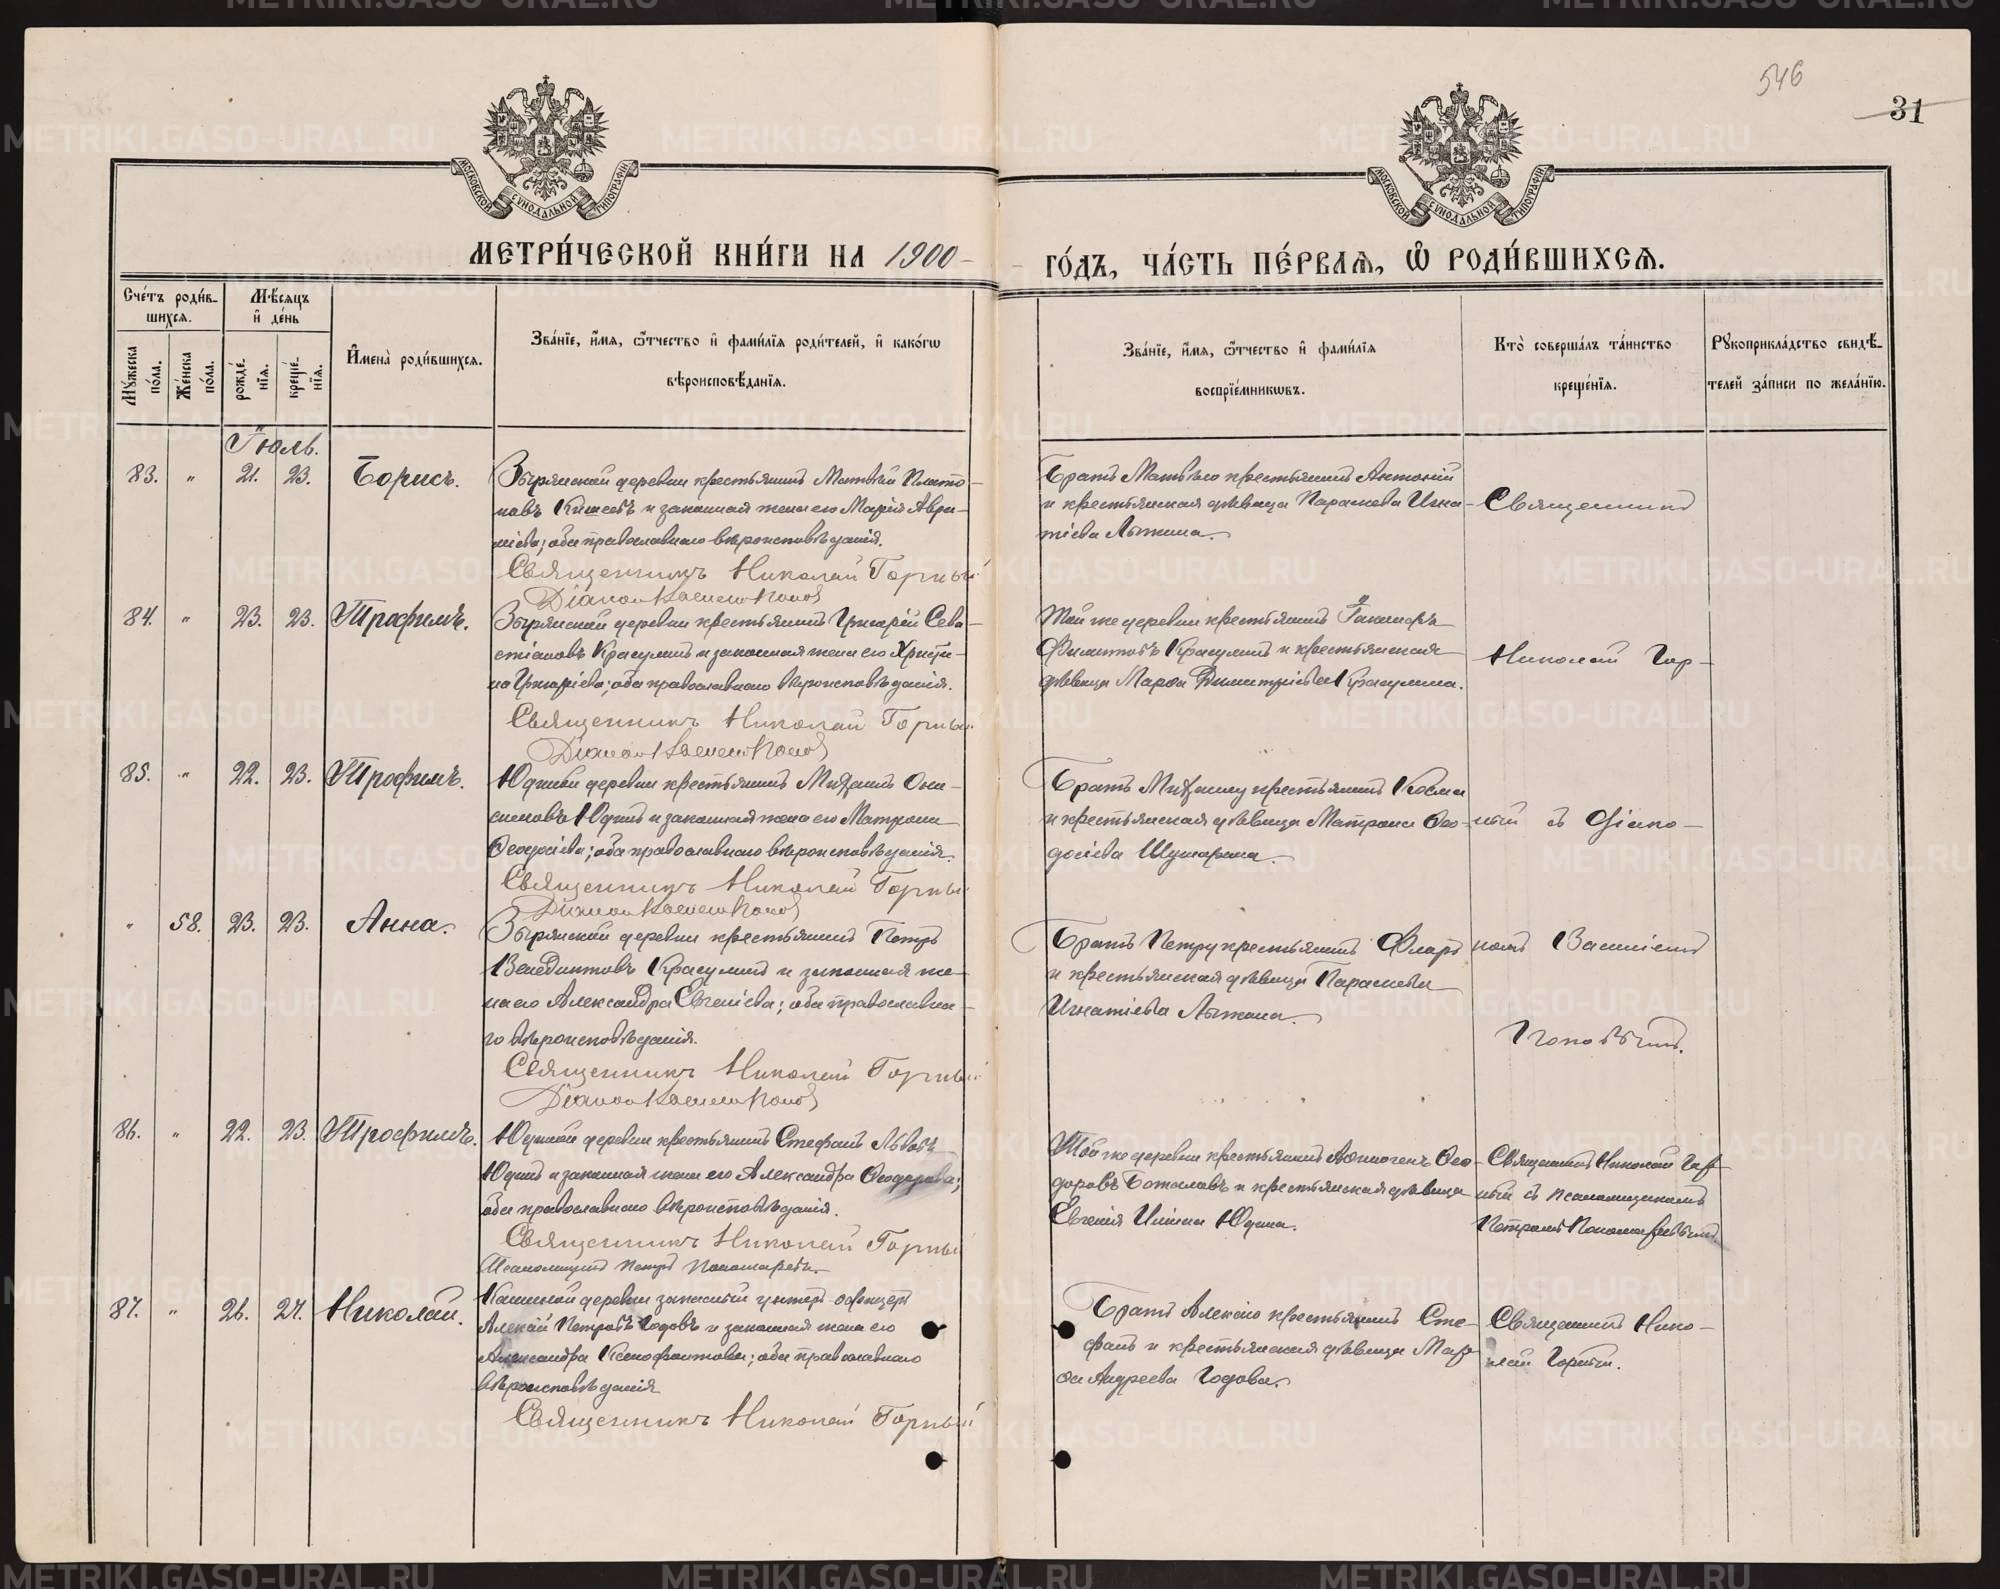 546
31
МОСКОВСКОЙ СѴНОДАЛЬНОЙ ТИПОГРАФІИ
МОСКОВСКОЙ СѴНОДАЛЬНОЙ ТИПОГРАФІИ
МЕТРИ́ЧЕСКОЙ КНИ́ГИ НА 1900
ГО́ДЪ, ЧА́СТЬ ПЕ́РВАѦ, Ѡ҆ РОДИ́ВШИХСѦ.
Сче́тъ роди́в-
шихсѧ.
Мѣ́сѧцъ
и҆ де́нь
Мꙋ́жеска
по́ла.
Же́нска
по́ла.
рожде́-
нїѧ.
креще́-
нїѧ.
И҆мена̀ роди́вшихсѧ.
Зва́нїе, и҆́мѧ, ѻ҆́тчество и҆ фами́лїѧ роди́телей, и҆ како́гѡ
вѣроисповѣ́данїѧ.
Зва́нїе, и҆́мѧ, ѻ҆́тчество и҆ фами́лїѧ
воспрїе́мникѡвъ.
Кто̀ соверша́лъ та́инство
креще́нїѧ.
Рꙋкоприкла́дство свидѣ́-
телей за́писи по жела́нїю.
Іюль.
83. " 21. 23. Борисъ.
Зырянской деревни крестьянинъ Матвѣй Плато-
новъ и законная жена его Марія
обѣ православнаго вѣроисповѣданія.
Священникъ Николай Горный
Братъ Матвѣю крестьянинъ Антоній
и крестьянская дѣвица Параскева Игна-
тіева Лыжина.
Священникъ
84. " 23. 23. Трофимъ.
Зырянской деревни крестьянинъ Григорій Сева-
стіановъ Красулинъ и законная жена его Христи-
на Григоріева; оба православнаго вѣроисповѣданія.
Священникъ Николай Горный
Той же деревни крестьянинъ
Филиповъ Красулинъ и крестьянская
дѣвица Марѳа Димитріева Красулина.
Николай Гор-
85. " 22. 23. Трофимъ.
Юдиной деревни крестьянинъ Михаилъ Они-
симовъ Юдинъ и законная жена его Матрона
Ѳеодосіева; оба православнаго вѣроисповѣданія.
Священникъ Николай Горный
Братъ Михаилу крестьянинъ Косма
и крестьянская дѣвица Матрона Ѳео-
досіева
ный съ діако-
" 58. 23. 23. Анна.
Зырянской деревни крестьянинъ Петръ
Венедиктовъ Красулинъ и законная же-
на его Александра Евгеніева; оба православна-
го вѣроисповѣданія.
Священникъ Николай Горный
Братъ Петру крестьянинъ
и крестьянская дѣвица Параскева
Игнатіева Лыжина.
номъ
86. " 22. 23. Трофимъ.
Юдиной деревни крестьянинъ Стефанъ Львовъ
Юдинъ и законная жена его Александра Ѳеодорова;
оба православнаго вѣроисповѣданія.
Священникъ Николай Горный
Псаломщикъ Петръ Пономаревъ.
Той же деревни крестьянинъ Аѳиногенъ Ѳео-
доровъ и крестьянская дѣвица
Евгенія Ильина Юдина.
Священникъ Николай Гор-
ный съ псаломщикомъ
Петромъ Пономаревымъ.
87. " 26. 27. Николай.
Кашиной деревни запасный унтеръ-офицеръ
Алексій Петровъ Годовъ и законная жена его
Александра Ксенофонтова; оба православнаго
вѣроисповѣданія
Священникъ Николай Горный
Братъ Алексію крестьянинъ Сте-
фанъ и крестьянская дѣвица Мар-
ѳа Андреева Годова.
Священникъ Нико-
лай Горный.